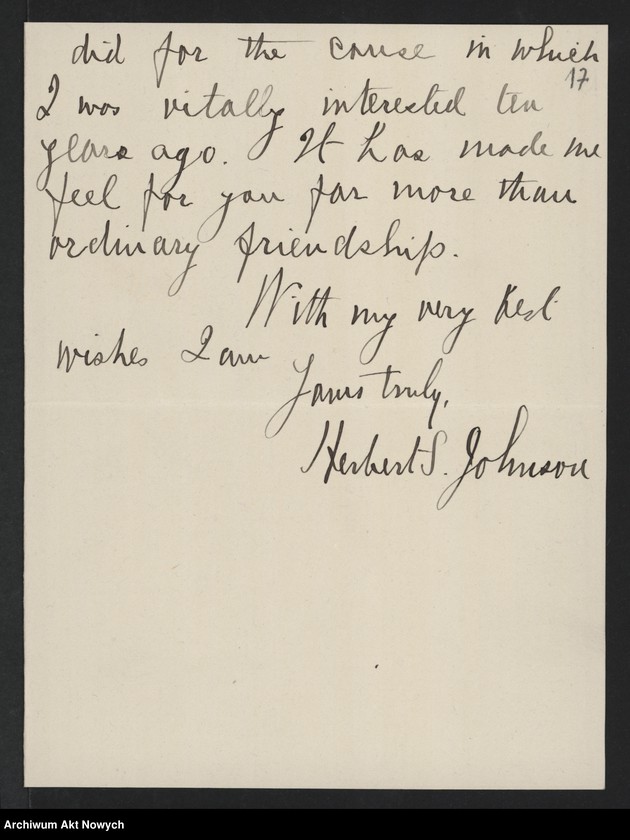 did for the cause in which
17
I was vitally interested ten
years ago. It has made me
feel for you far more than
ordinary friendship.
With my very best
wishes I am
Yours truly,
Herbert S. Johnson
Archiwum Akt Nowych